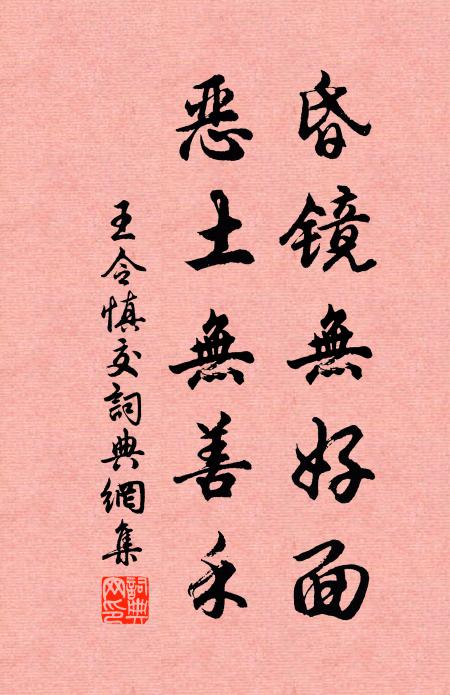 昏镜無好面
惡土無善禾
王令慎交詞典網集
詞典網印